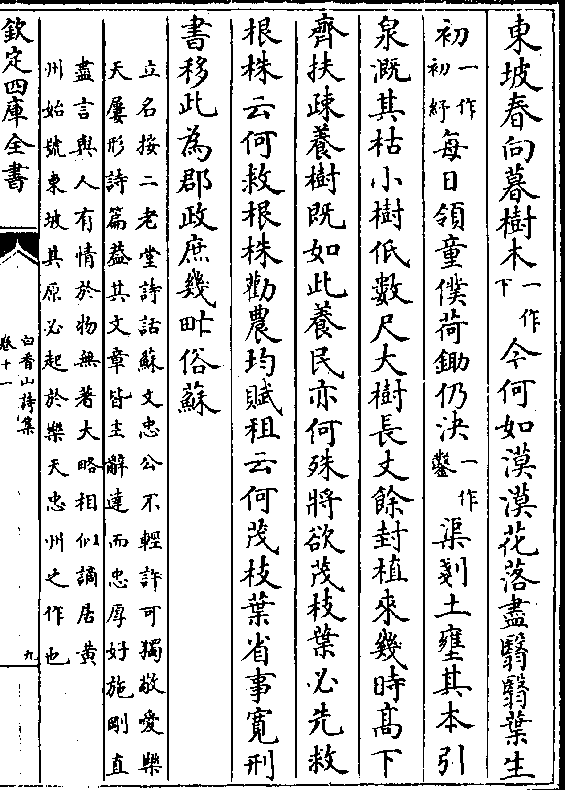 東坡春向暮樹木一作下今何如漠漠花落盡翳翳葉生
初一作初紓每日領童僕荷鋤仍決一作鑿渠剗土壅其本引
泉溉其枯小樹低數尺大樹長丈餘封植來幾時髙下
齊扶疎養樹既如此養民亦何殊將欲茂枝葉必先救
根株云何救根株勸農均賦租云何茂枝葉省事寛刑
書移此為郡政庶幾甿俗蘇
立名按二老堂詩話蘇文忠公不輕許可獨敬愛樂
天屢形詩篇葢其文章皆主辭達而忠厚好施剛直
盡言與人有情於物無著大略相似謫居黄
州始號東坡其原必起於樂天忠州之作也
欽定四庫全書
白香山詩集
卷十一
九